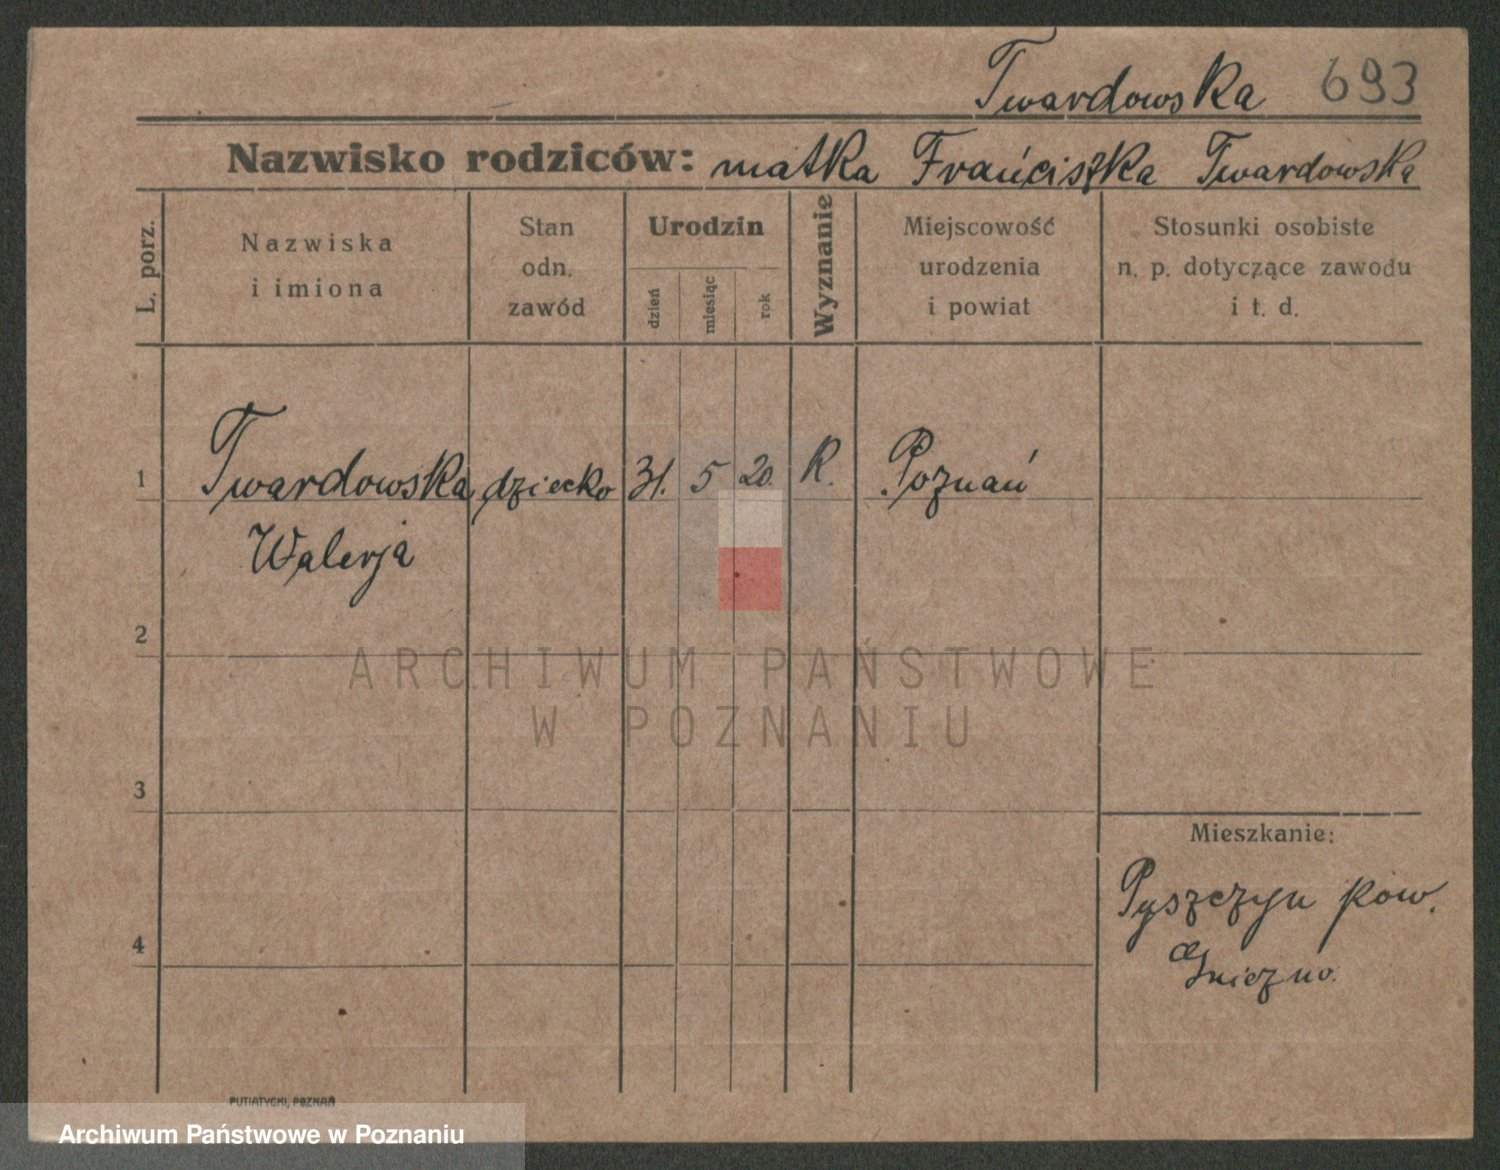 Twardowska 693
Nazwisko rodziców: matka Frańciszka Twardowska
L. porz.
Nazwiska
i imiona
Stan
odn.
zawód
Urodzin
dzień
miesiąc
rok
Wyznanie
Miejscowość
urodzenia
i powiat
Stosunki osobiste
n. p. dotyczące zawodu
i t. d.
1 Twardowska, dziecko 31. 5 20. R. Poznań
Walerja
2
ARCHIWUM PAŃSTWOWE
W POZNANIU
3
Mieszkanie:
Pyszczyn pow.
Gniezno.
4
PUTIATYCKI, POZNAŃ
Archiwum Państwowe w Poznaniu